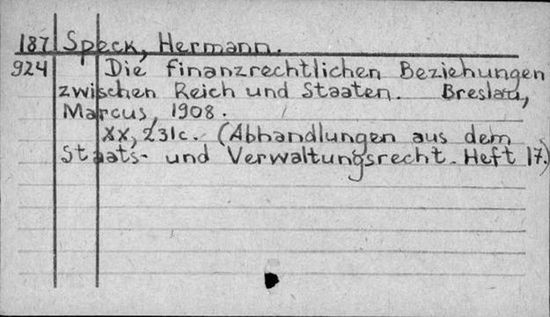 187 Speck, Hermann.
924 Die finanzrechtlichen Beziehungen
zwischen Reich und Staaten. Breslau,
Marcus, 1908.
XX, 231c. (Abhandlungen aus dem
Staats- und Verwaltungsrecht. Heft 17.)